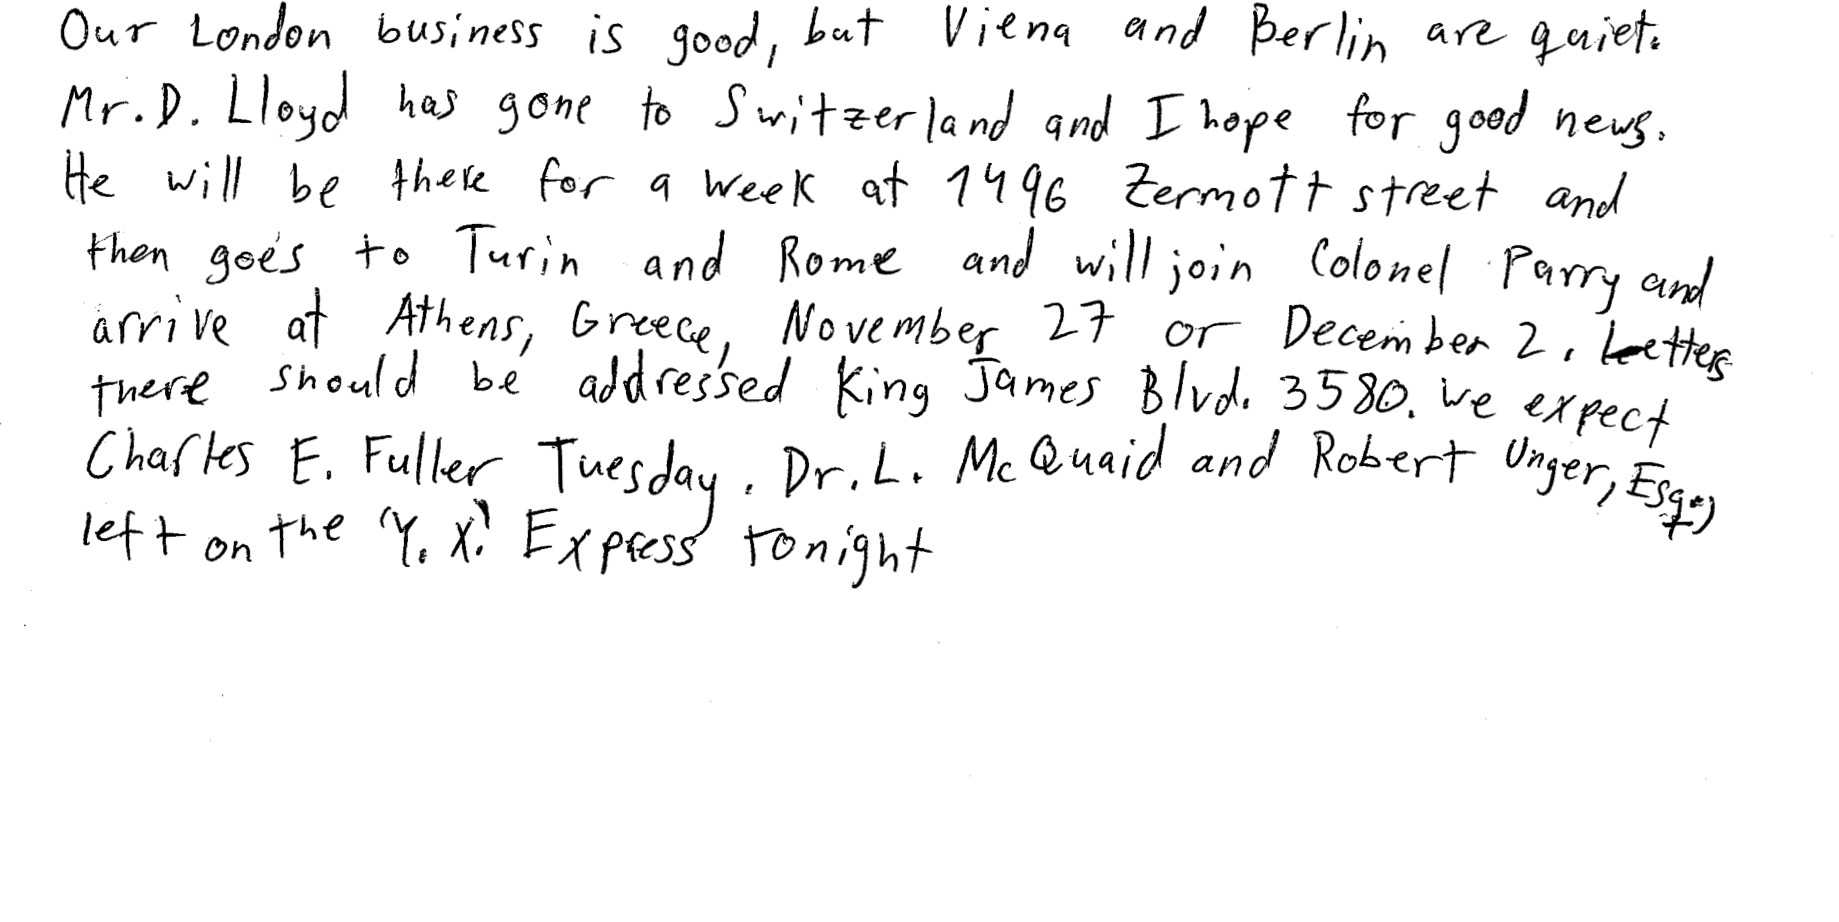 Our London business is good, but Viena and Berlin are quiet.
Mr. D. Lloyd has gone to Switzerland and I hope for good news.
He will be there for a week at 1496 Zermott street and
then goes to Turin and Rome and will join Colonel Parry and
arrive at Athens, Greece, November 27 or December 2. Letters
there should be addressed King James Blvd. 3580. We expect
Charles E. Fuller Tuesday. Dr. L. McQuaid and Robert Unger, Esq.,
left on the "Y. X." Express tonight